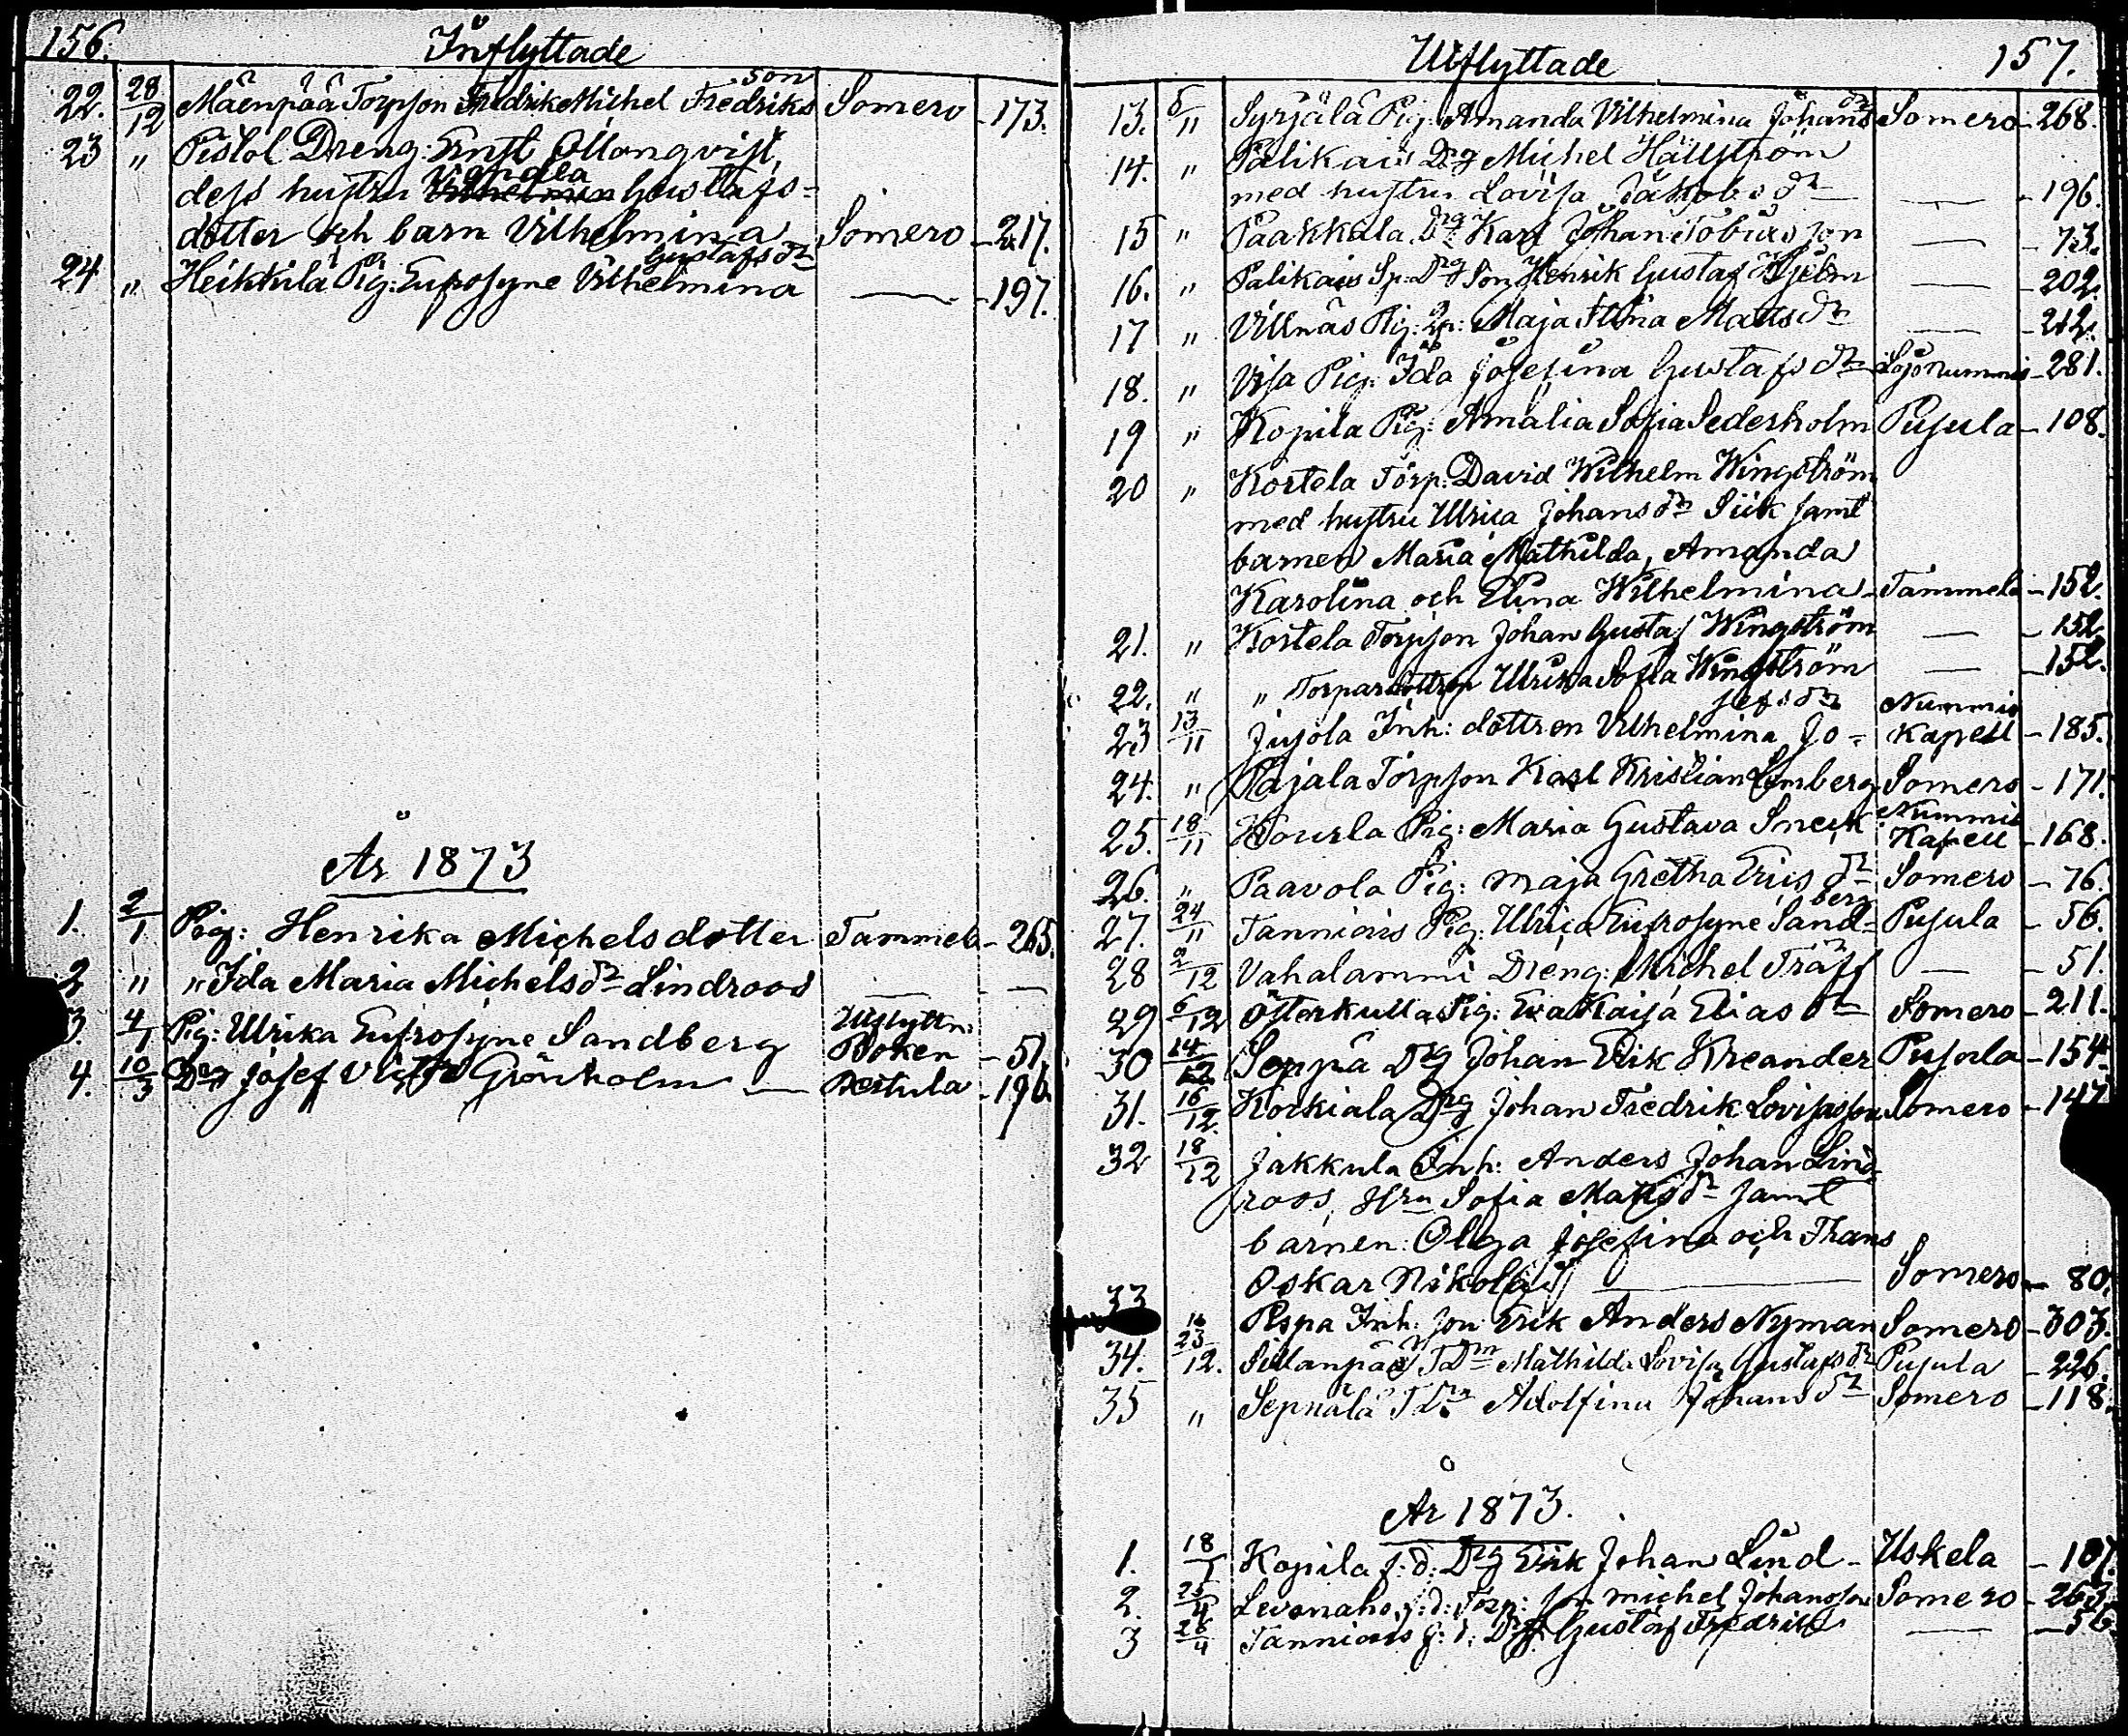 156.
Inflyttade
22. 28/12 Mäenpää Torpson Fredrik Michel Fredriks son Somero - 173.
23 " Pistol Dreng: Ernst Ollonqvist,
dess hustru Vendla Gustafs-
dotter och barn Vilhelmina Somero - 217.
24 " Heikkilä Pig: Eufrosyne Vilhelmina Gustafs dr — - 197.
År 1873
1. 2/1 Pig: Henrika Michelsdotter Tammela - 265.
2 " " Ida Maria Michelsdr Lindroos — —
3. 4/1 Pig: Ulrika Eufrosyne Sandberg Utflyttn: Boken - 51.
4. 10/3 Drg Josef Grönholm — Pertula - 196.
Utflyttade
157.
13. 5/11 Syrjälä Pig: Amanda Vilhelmina Johans dr Somero - 268.
14. " Palikais Drg Michel Hällström
med hustru Lovisa Jakobs dr — - 196.
15 " Paakkala Drg Karl Johan Tobiasson — - 73.
16. " Palikais Sp. Drg Son Henrik Gustaf Hjelm — - 202.
17 " Villnäs Pig: Maja Stina Matts dr — - 212.
18. " Visa Pig: Ida Josefina Gustafs dr Lojo Nummis - 281.
19 " Kopila Pig: Amalia Sofia Sederholm Pusula - 108.
20 " Kortela Torp: David Wilhelm Wingström
med hustru Ulrica Johans dr Siik samt
barnen Maria Mathilda, Amanda
Karolina och Elina Wilhelmina - Tammela - 152.
21. " Kortela Torpson Johan Gustaf Wingström — - 152.
22. " " Torpardottren Ulrika Sofia Wingström — - 152.
23 13/11 Jusola Inh: dottren Vilhelmina Jo-sefs dr Nummis Kapell - 185.
24. " Pajala Torpson Karl Kristian Limberg Somero - 171.
25. 18/11 Kourla Pig: Maria Gustava Sneck Nummis Kapell - 168.
26. " Paavola Pig: Maja Gretha Eriks dr Somero - 76.
27. 24/11 Tanniais Pig: Ulrica Eufrosyne Sand-berg Pusula - 56.
28 2/12 Vahalammi Dreng: Michel Träff — - 51.
29 6/12 Otterkulla Pig: Eva Kaisa Elias dr Somero - 211.
30 14/12 Seppä Drg Johan Erik Kreander Pusula - 154.
31. 16/12. Korkiala Drg Johan Fredrik Lovisasson Somero - 147.
32 18/12 Jakkula Inh: Anders Johan Lind-
roos, Hru Sofia Matts dr samt
barnen: Olga Josefina och Frans
Oskar Nikolai — Somero - 80.
33 Pispa Inh: son Erik Anders Nyman Somero - 303.
34. 23/12. Sillanpää T Dr Mathilda Lovisa Gustafs dr Pusula - 226.
35 " Seppälä T Dr Adolfina Johans dr Somero - 118.
År 1873.
1. 18/1 Kopila f: d: Drg Erik Johan Lind - Uskela - 107.
2. 25/4 Levonaho, f: d: Torp: son Michel Johansson Somero - 263.
3 28/4 Tanniais f: d: Drg Gustaf Fredrik — - 56.